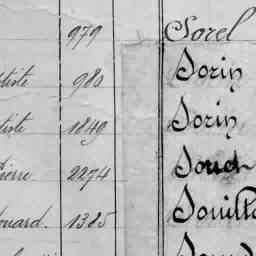 979 Sorel
tiste 980 Sorin
tiste 1849 Sorin
Pierre 2274 Souch
ouard. 1385 Souill